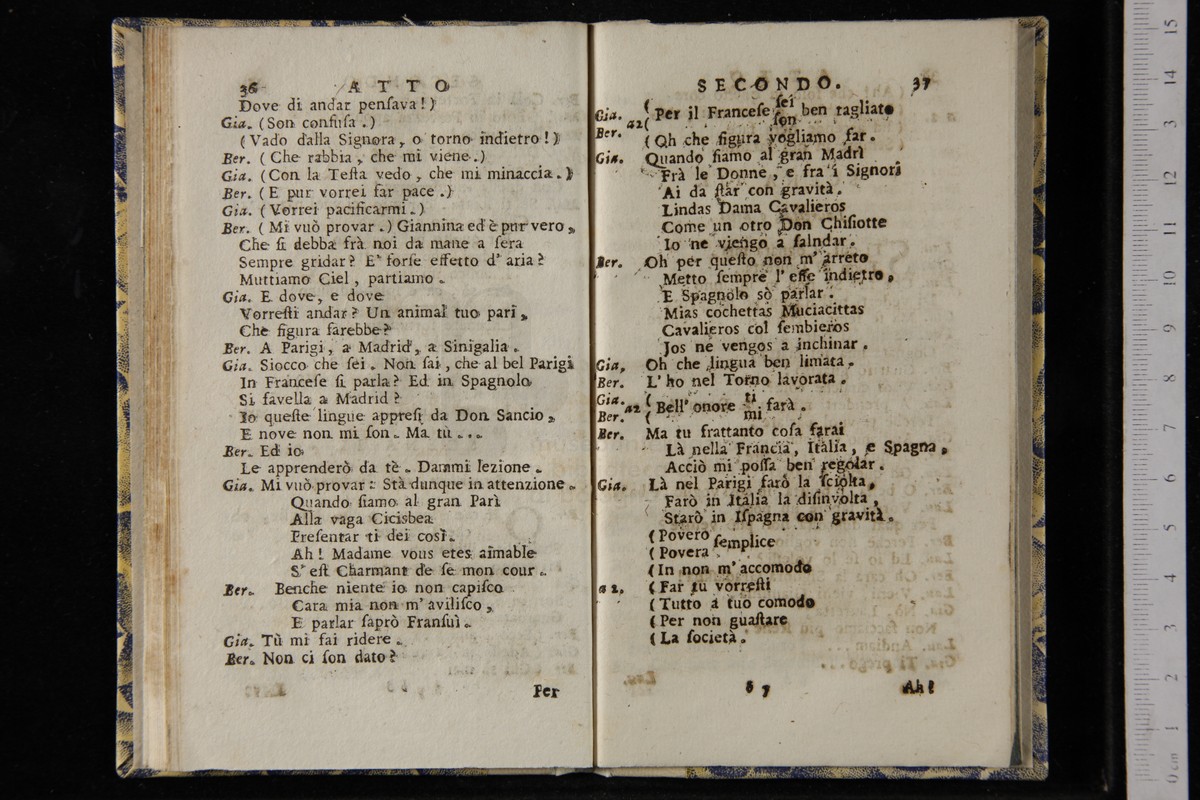 36 ATTO
Dove di andar penſava!)
Gia. (Son confuſa.)
(Vado dalla Signora, o torno indietro!)
Ber. (Che rabbia, che mi viene.)
Gia. (Con la Teſta vedo, che mi minaccia.)
Ber. (E pur vorrei far pace.)
Gia. (Vorrei pacificarmi.)
Ber. (Mi vuò provar.) Giannina ed è pur vero,
Che ſi debba frà noi da mane a ſera
Sempre gridar? E' forſe effetto d' aria?
Muttiamo Ciel, partiamo.
Gia. E dove, e dove
Vorreſti andar? Un animal tuo pari,
Che figura farebbe?
Ber. A Parigi, a Madrid, a Sinigalia.
Gia. Siocco che ſei. Non ſai, che al bel Parigi
In Franceſe ſi parla? Ed in Spagnolo
Si favella a Madrid?
Io queſte lingue appreſi da Don Sancio,
E nove non mi ſon. Ma tù ...
Ber. Ed io
Le apprenderò da tè. Dammi lezione.
Gia. Mi vuò provar: Stà dunque in attenzione.
Quando ſiamo al gran Parì
Alla vaga Cicisbea
Preſentar ti dei così.
Ah! Madame vous etes aimable
S' eſt Charmant de ſe mon cour.
Ber. Benche niente io non capiſco
Cara mia non m' aviliſco,
E parlar ſaprò Franſuì.
Gia. Tù mi fai ridere.
Ber. Non ci ſon dato?
Per
SECONDO. 37
Gia. a2 ( Per il Franceſe ſei ben tagliato
Ber. ( ſon
(Oh che figura vogliamo far.
Gia. Quando ſiamo al gran Madrì
Frà le Donne, e fra i Signori
Ai da ſtar con gravità.
Lindas Dama Cavalieros
Come un otro Don Chiſiotte
Io ne viengo a falndar.
Ber. Oh per queſto non m' arreto
Metto ſempre l' eſſe indietro,
E Spagnolo sò parlar.
Mias cochettas Muciacittas
Cavalieros col ſembieros
Jos ne vengos a inchinar.
Gia. Oh che lingua ben limata.
Ber. L' ho nel Torno lavorata.
Gia. a2 ( Bell' onore ti farà.
Ber. ( mi
Ber. Ma tu frattanto coſa farai
Là nella Francia, Italia, e Spagna,
Acciò mi poſſa ben regolar.
Gia. Là nel Parigi farò la ſciolta,
Farò in Italia la diſinvolta,
Starò in Iſpagna con gravità.
(Povero ſemplice
(Povera
(In non m' accomodo
a 2. (Far tu vorreſti
(Tutto a tuo comodo
(Per non guaſtare
(La ſocietà.
Ah!